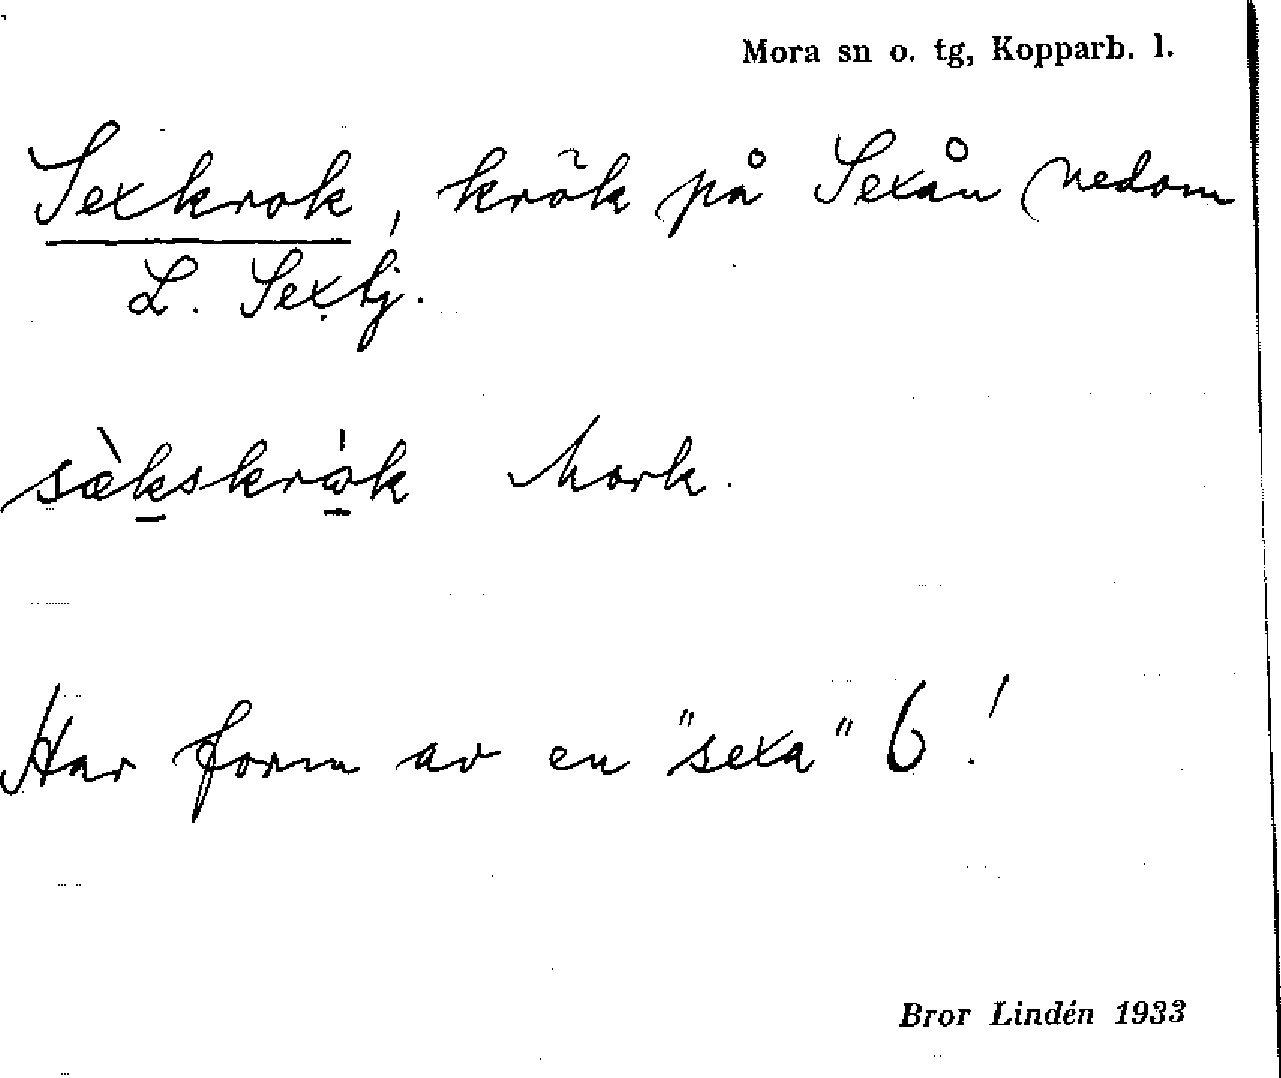 Mora sn o. tg, Kopparb. l.
Sexkrok, krök på Sexån nedom
L. Sextj.
sæ̀kskròk Mork.
Har form av en "sexa" 6!
Bror Lindén 1933